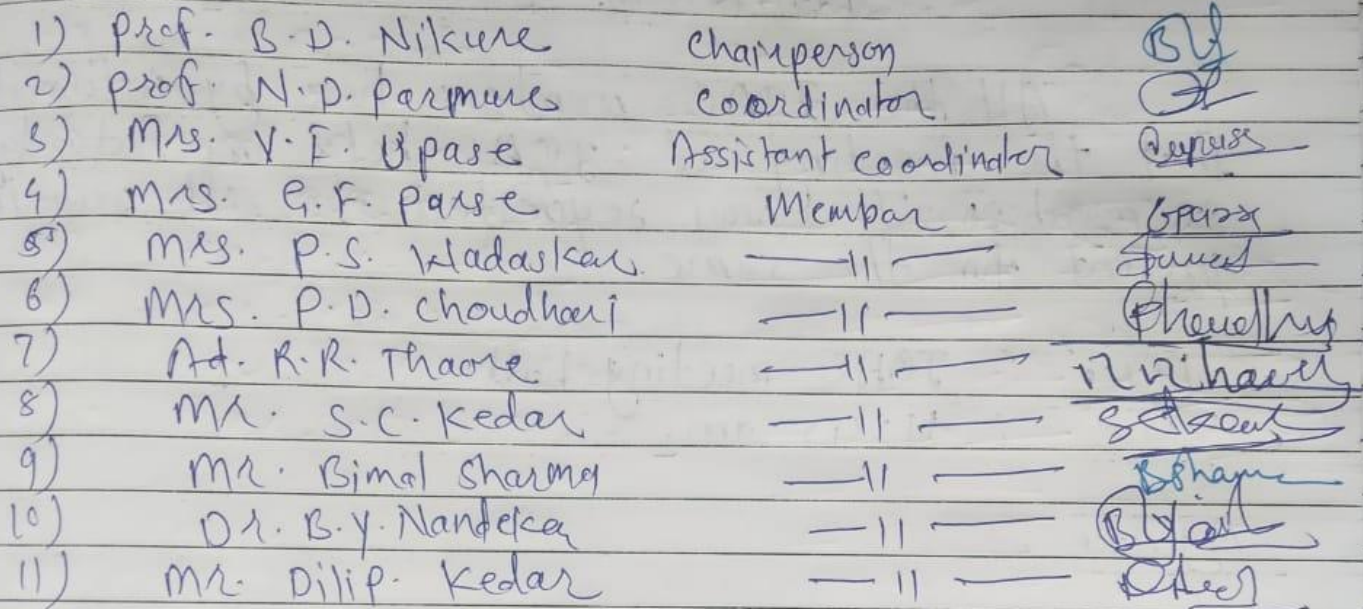 1) Prof. B.D. Nikure Chairperson
2) Prof. N.D. Parmure Coordinator
3) Mrs. V.I. Upase Assistant Coordinator
4) Mrs. G.F. Parse Membar
5) Mrs. P.S. Wadaskar. —11—
6) Mrs. P.D. Choudhari —11—
7) Ad. R.R. Thaore —11—
8) Mr. S.C. Kedar —11—
9) Mr. Bimal Sharma —11— BSharma
10) Dr. B.Y. Nandekar —11—
11) Mr. Dilip. Kedar —11—